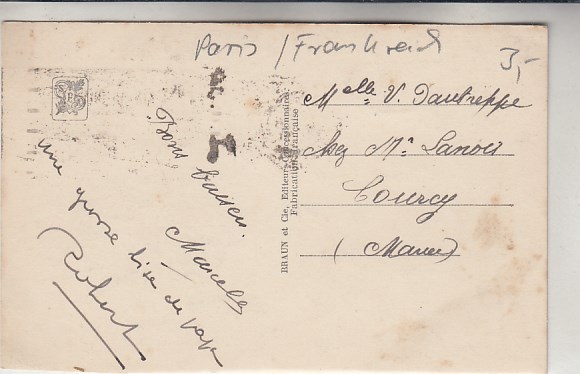 Paris / Frankreich
3,-
Bons baisers.
Marcelle
une grosse bise de papa
Robert
BRAUN et Cie, Editeurs-Concessionnaires
Fabrication Française
Melle V. Dautreppe
chez Mr Lanois
Courcy
(Marne)